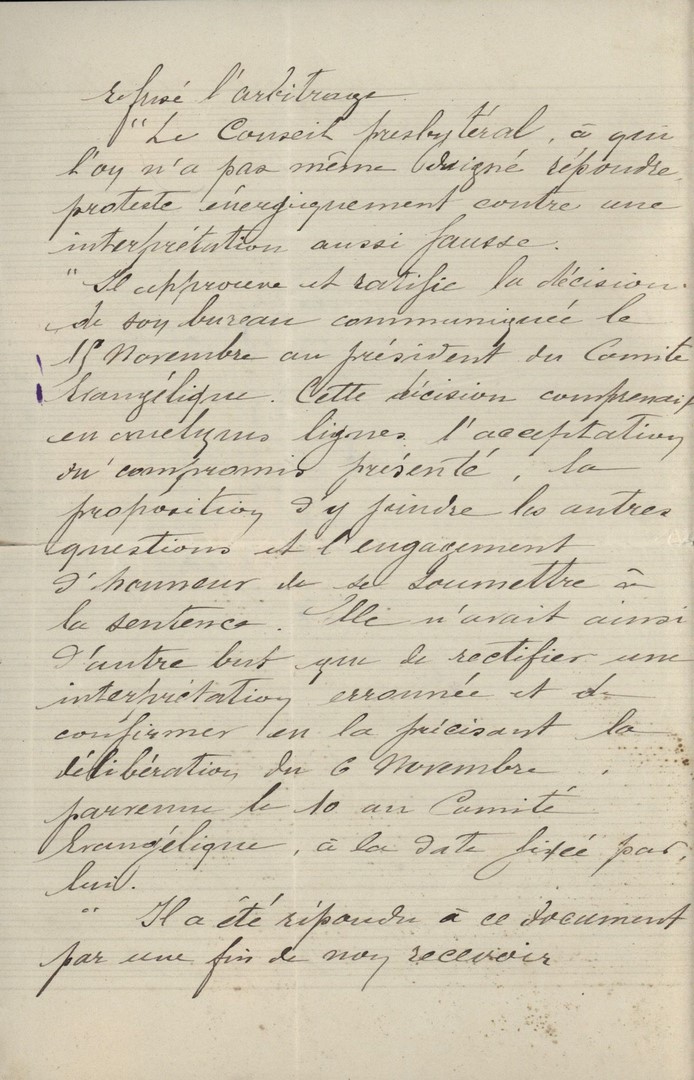 refusé l'arbitrage
"Le Conseil presbytéral, à qui
l'on n'a pas même daigné répondre,
proteste énergiquement contre une
interprétation aussi fausse.
"Il approuve et ratifie la décision
de son bureau communiquée le
15 Novembre au président du Comité
Evangélique. Cette décision comprenait
en quelques lignes l'acceptation
du compromis présenté, la
proposition d'y joindre les autres
questions et l'engagement
d'honneur de se soumettre à
la sentence. Elle n'avait ainsi
d'autre but que de rectifier une
interprétation erronnée et de
confirmer en la précisant la
délibération du 6 Novembre,
parvenue le 10 au Comité
Evangélique, à la date fixée par
lui.
" Il a été répondu à ce document
par une fin de non recevoir